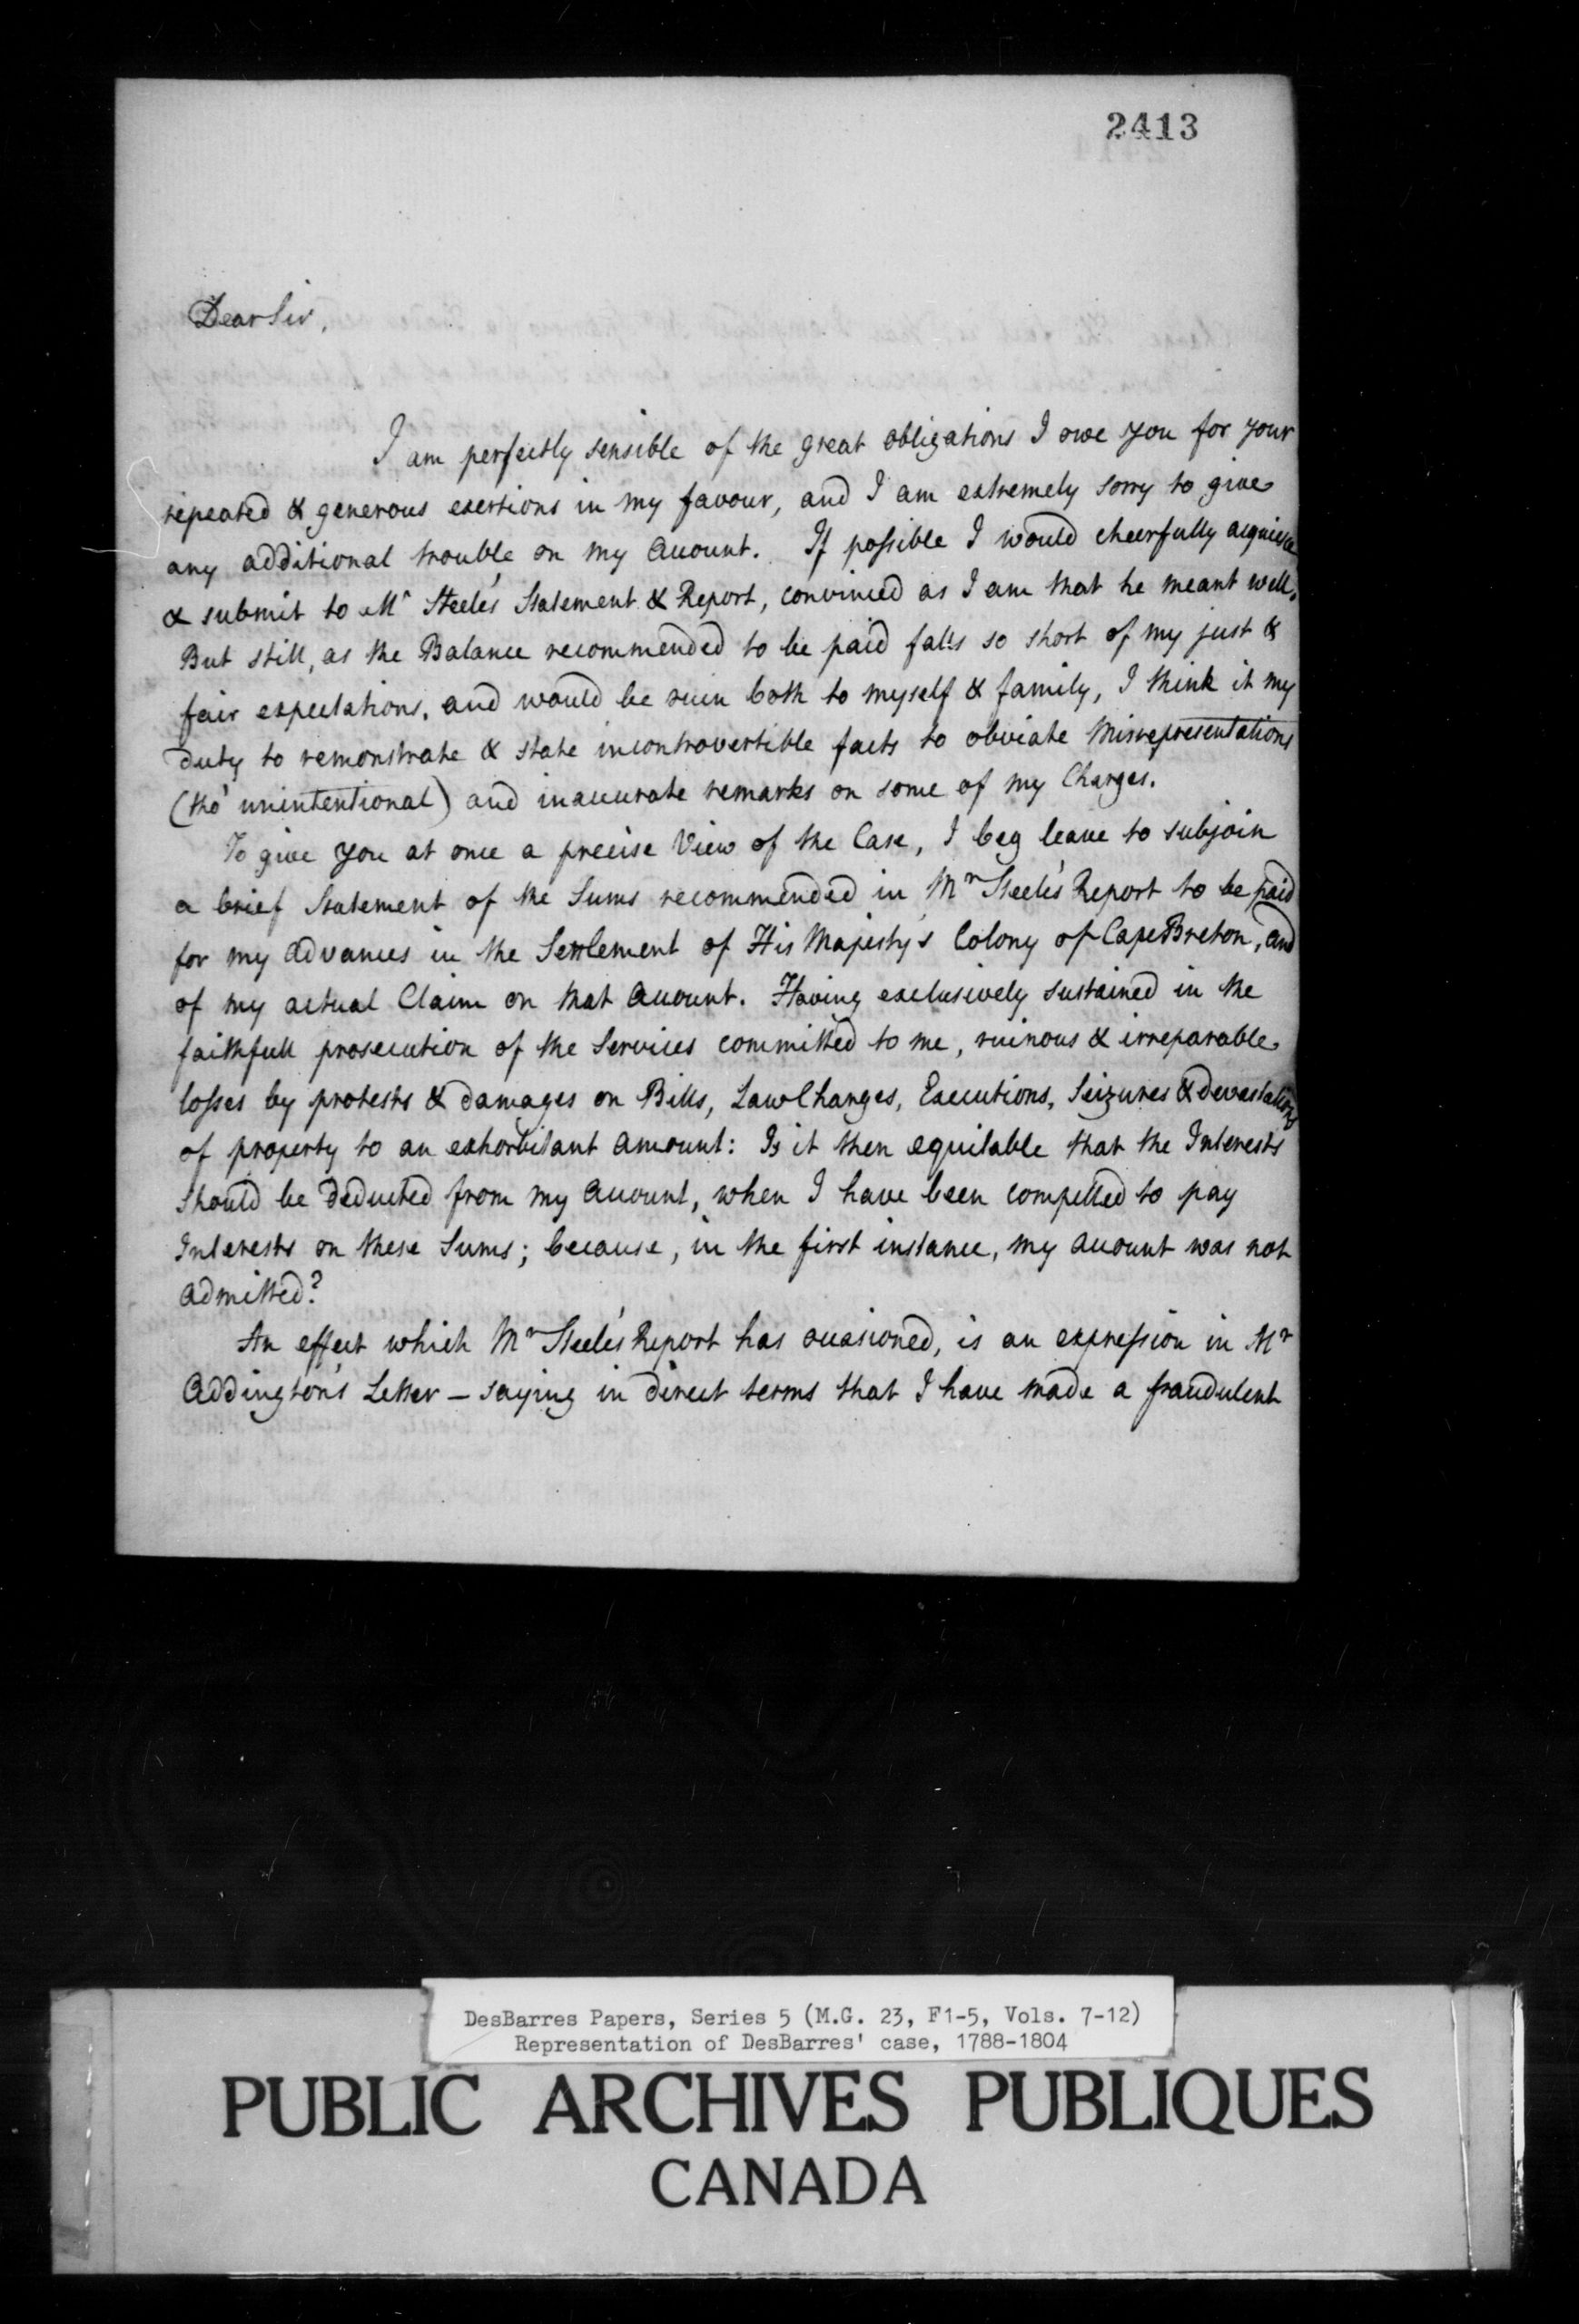 2413
Dear Sir,
I am perfectly sensible of the great obligations I owe you for your
repeated & generous exertions in my favour, and I am extremely sorry to give
any additional trouble on my Account. If possible I would cheerfully acquiesce
& submit to Mr Steele's Statement & Report, convinced as I am that he meant well.
But still, as the Balance recommended to be paid falls so short of my just &
fair expectations, and would be ruin both to myself & family, I think it my
duty to remonstrate & state incontrovertible facts to obviate Misrepresentations
(tho' unintentional) and inaccurate remarks on some of my Charges.
To give you at once a precise View of the Case, I beg leave to subjoin
a brief Statement of the Sums recommended in Mr Steele's Report to be paid
for my Advances in the Settlement of His Majesty's Colony of Cape Breton, and
of my actual Claim on that Account. Having exclusively sustained in the
faithfull prosecution of the Services committed to me, ruinous & irreparable
losses by protests & damages on Bills, Law Charges, Executions, Seizures & devastations
of property to an exhorbitant amount: Is it then equitable that the Interests
should be deducted from my Account, when I have been compelled to pay
Interests on these Sums; because, in the first instance, my Account was not
admitted?
An effect which Mr Steele's Report has occasioned, is an expression in Mr
Addington's Letter — saying in direct terms that I have made a fraudulent
DesBarres Papers, Series 5 (M.G. 23, F1-5, Vols. 7-12)
Representation of DesBarres' case, 1788-1804
PUBLIC ARCHIVES PUBLIQUES
CANADA